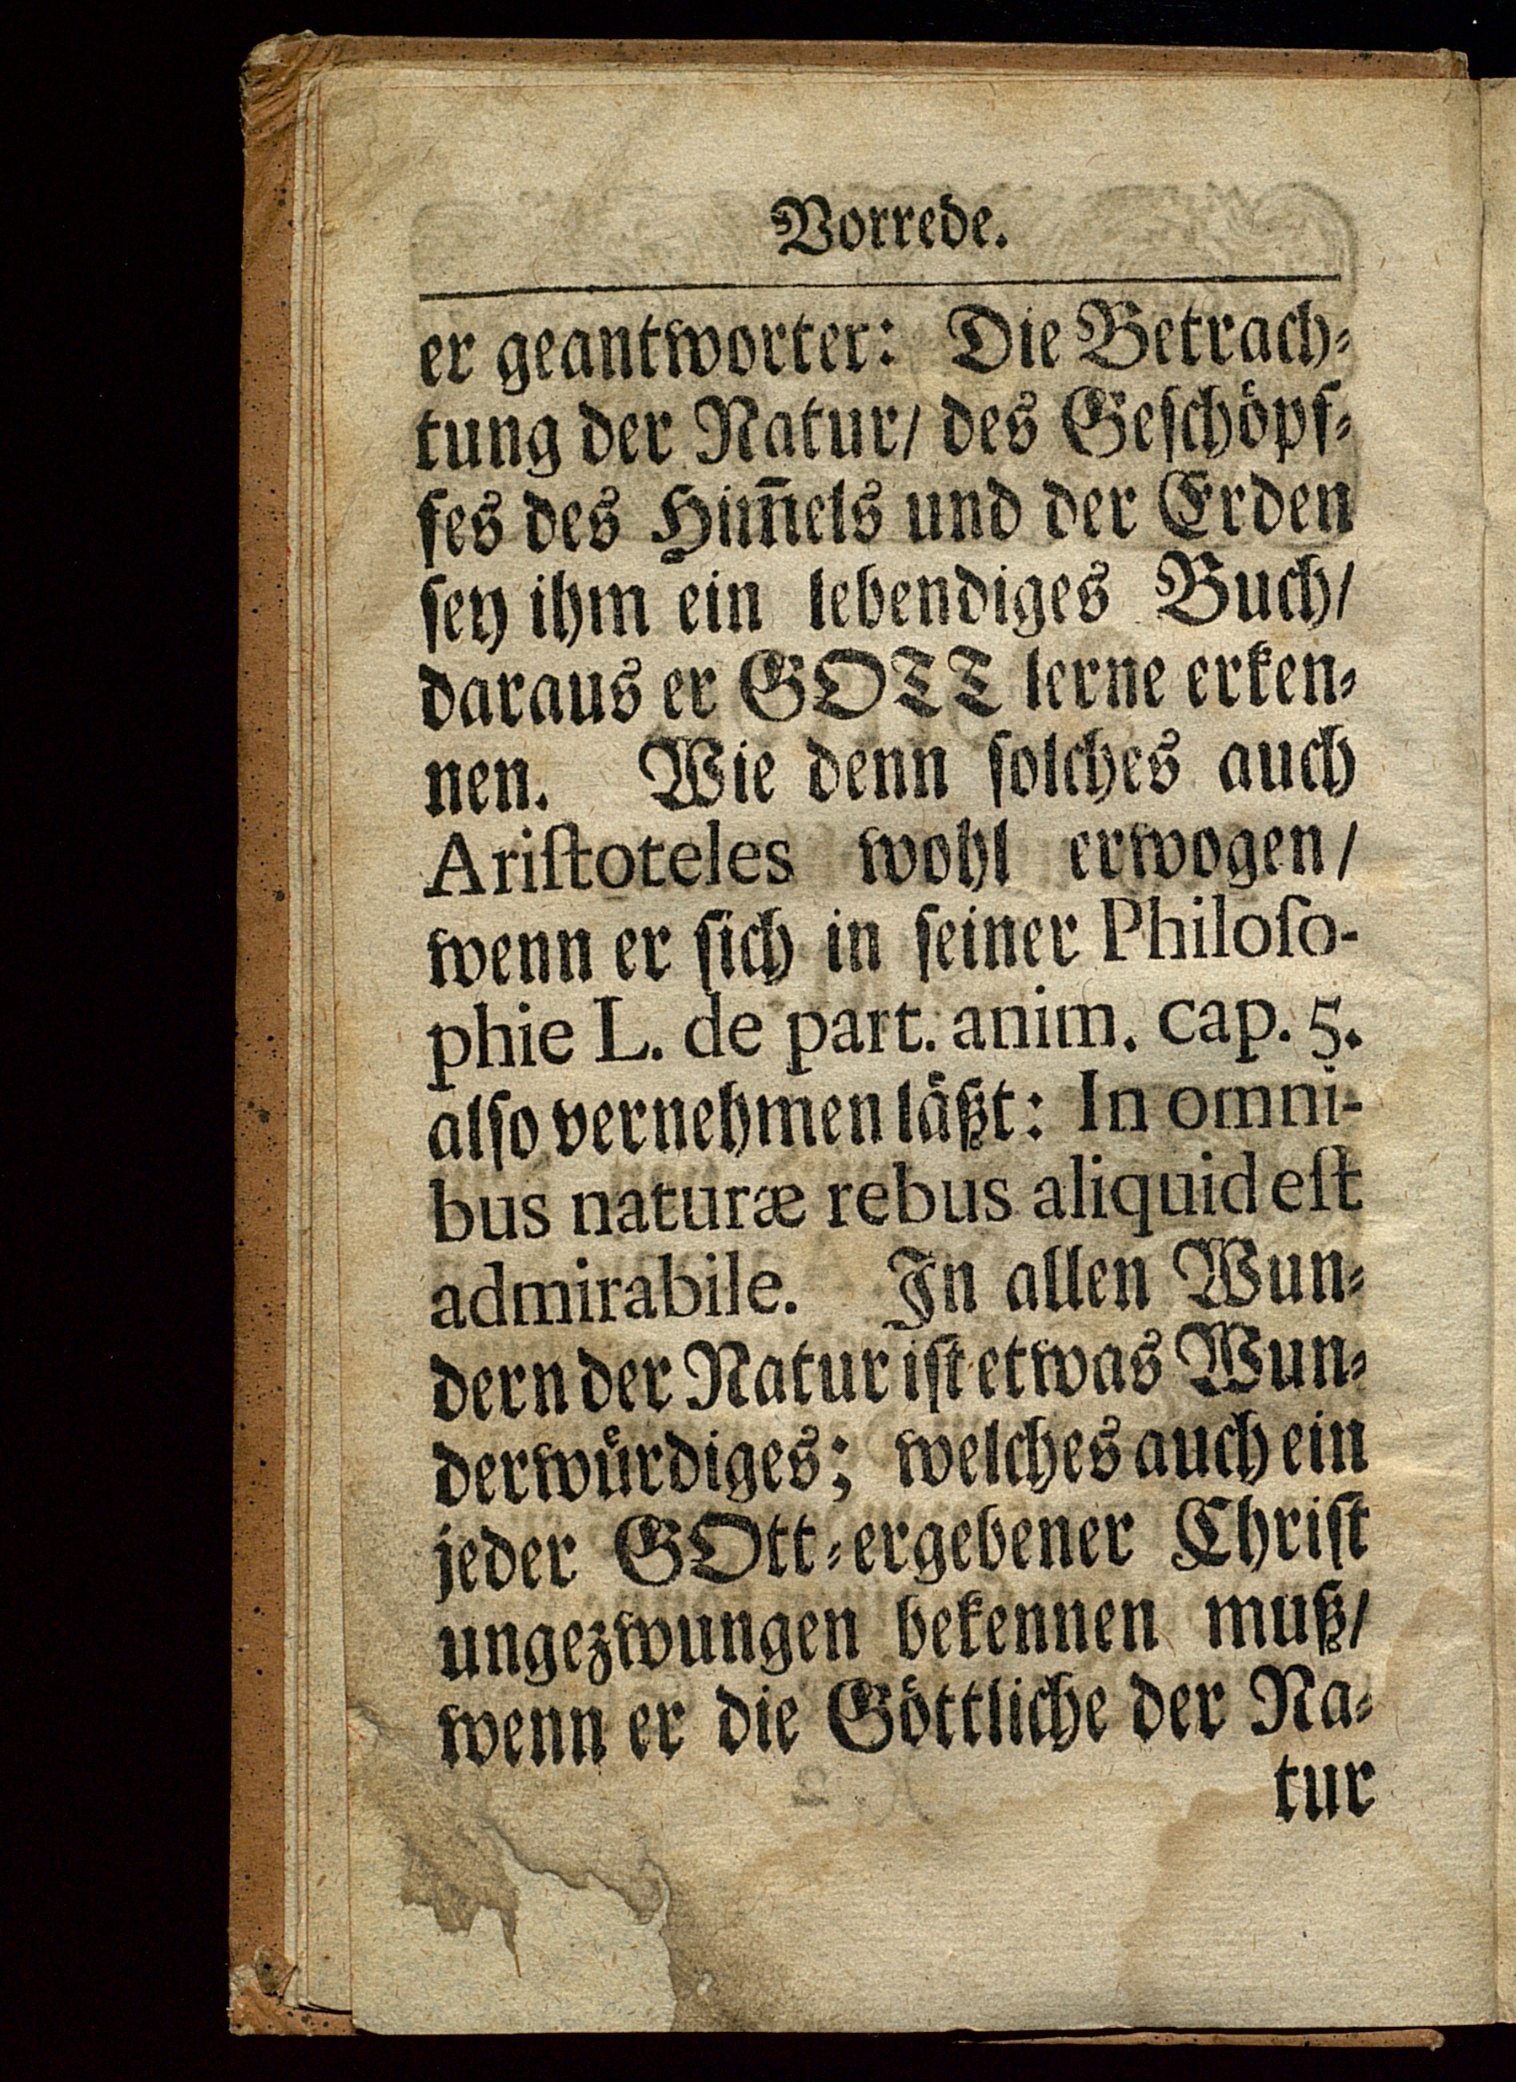 Vorrede.
er geantwortet: Die Betrach⸗
tung der Natur/ des Geſchöpf⸗
fes des Him̄els und der Erden
ſey ihm ein lebendiges Buch/
daraus er GOTT lerne erken⸗
nen. Wie denn ſolches auch
Ariſtoteles wohl erwogen/
wenn er ſich in ſeiner Philoſo-
phie L. de part. anim. cap. 5.
alſo vernehmen läßt: In omni-
bus naturæ rebus aliquid eſt
admirabile. In allen Wun⸗
dern der Natur iſt etwas Wun⸗
derwuͤrdiges; welches auch ein
jeder GOtt⸗ergebener Chriſt
ungezwungen bekennen muß/
wenn er die Göttliche der Na⸗
tur